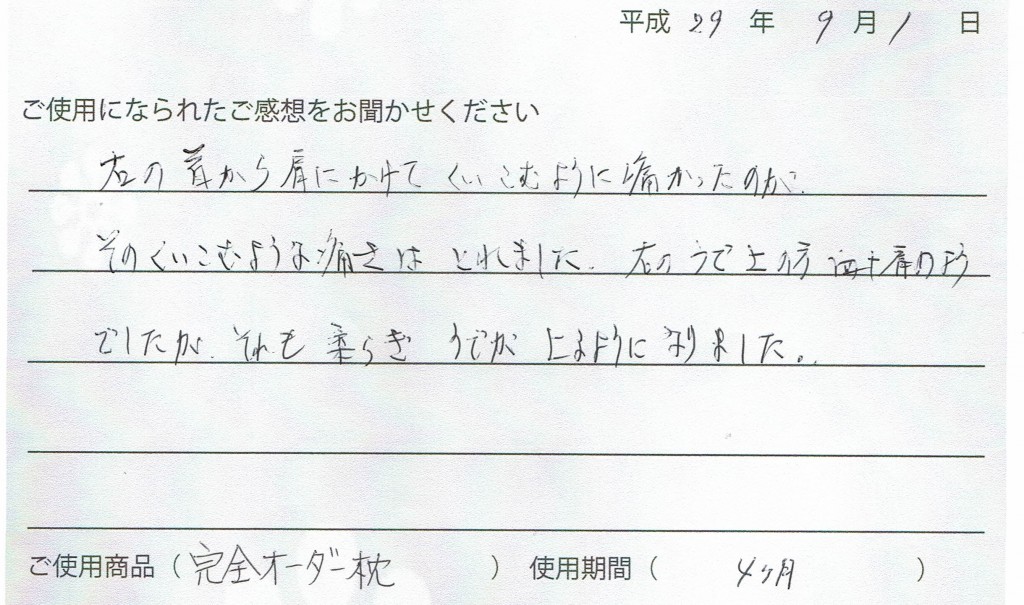 平成 29 年 9 月 1 日
ご使用になられたご感想をお聞かせください
右の首から肩にかけてくいこむように痛かったのが、
そのくいこむような痛さはとれました。右のうで上の方 肩のよう
でしたが、それも柔らぎ うでが上るように成りました。
ご使用商品（完全オーダー枕　）使用期間（4ヶ月　）